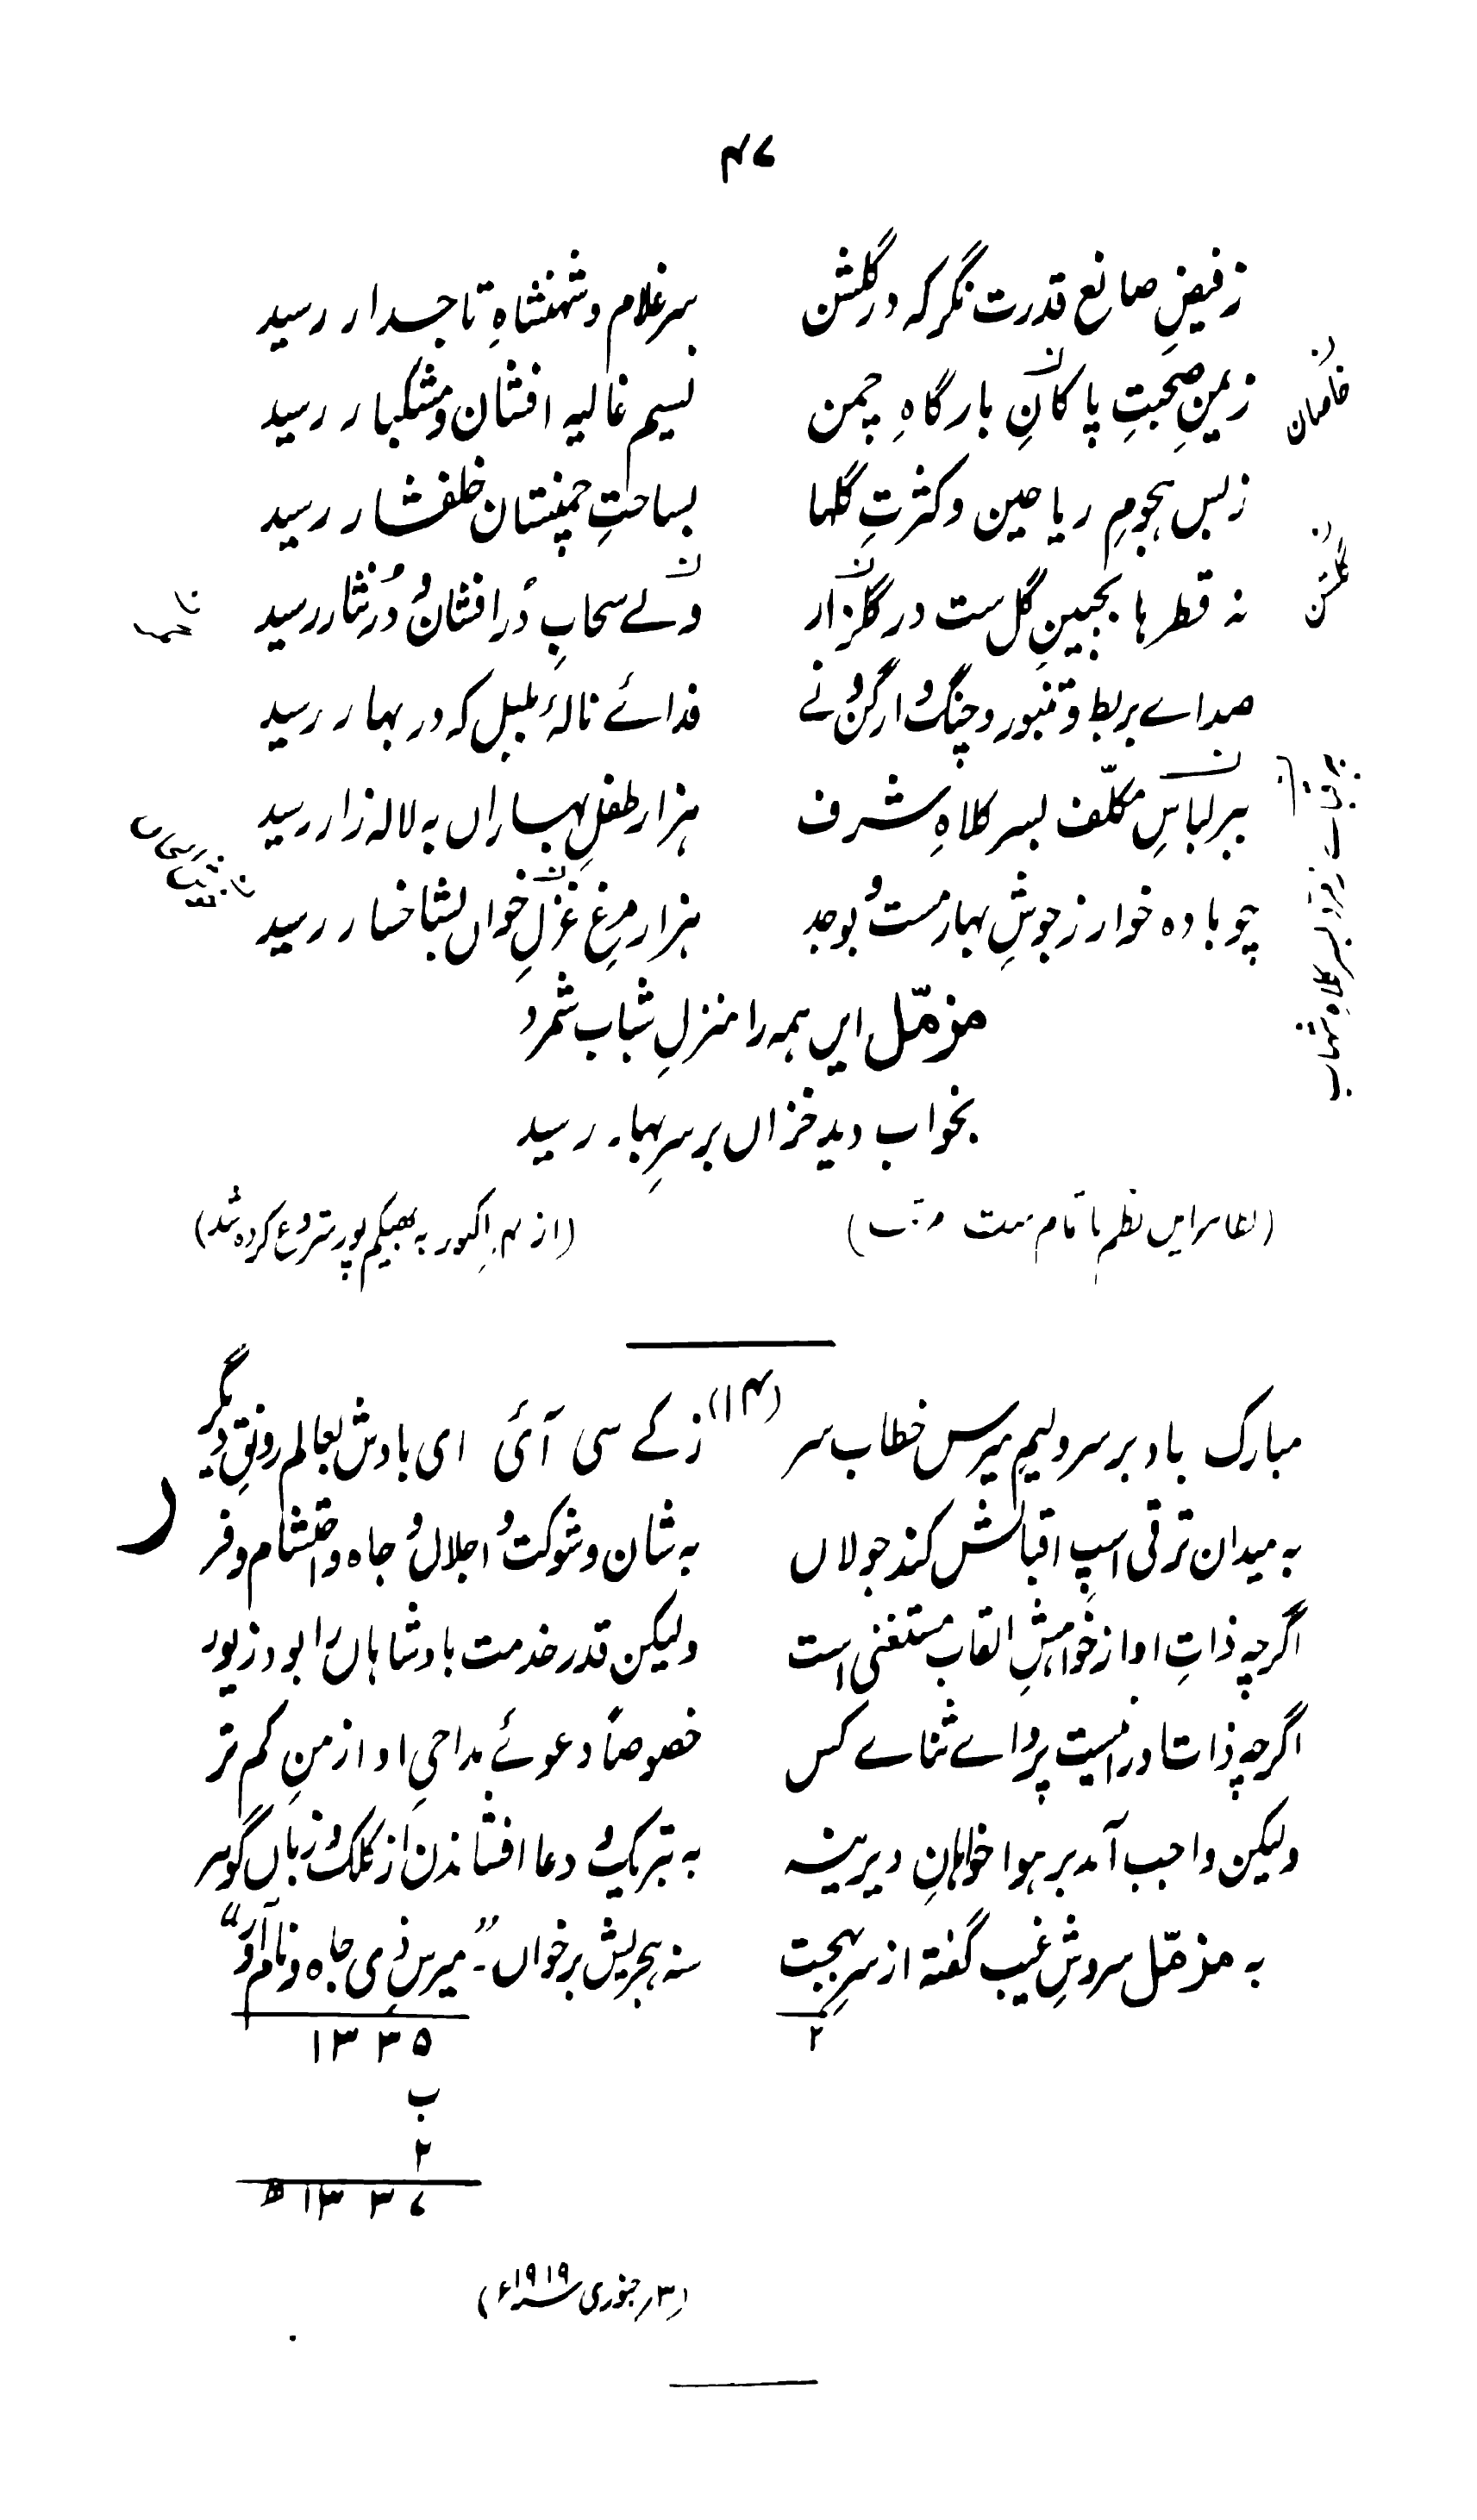 ۴۷
ز فیضِ صانعِ قدرت نگر کہ در گلشن    بہر غلام و شہنشاہِ تاجدار رسید
ز یمنِ صحبتِ پاکانِ بارگاہِ چمن    نسیم غالیہ افشان و مشکبار رسید
خاصانِ
ز بس ہجومِ ریاحین و کثرتِ گلہا    بساحتِ چمنستان خلفشار رسید
نہ قطرہا بجبینِ گل ست در گلزار    ولے سحابِ دُر افشان و دُر نثار رسید
گلشن
صداے بربط و تنبور و چنگ و ارگن و نے    فدائے نالۂ بلبل کہ در بہار رسید
ببر لباسِ مکلّف بسر کلاہِ شرف    ہزار طفلِ بہاراں بہ لالہ زار رسید
چو بادہ خوار ز جوشِ بہار مست و بوجد    ہزار مرغِ غزل خواں بشاخسار رسید
مزمّل ایں ہمہ را منزلِ شباب شمرد
بخواب دید خزاں بر سرِ بہار رسید
(ایں نظم ناتمام ست)    (از ۴؍ اکتوبر بہ بھیکم پور شروع کردہ شد)
(۱۴)
مبارک باد بر سر ولیم میرس خطاب سر    ز کے سی آئی ای بادش بعالم رونقِ دیگر
بہ میدان ترقی اسپِ اقبالش کند جولاں    بہ شان و شوکت و اجلال و جاہ و احتشام و فر
اگرچہ ذاتِ او از خواہشِ القاب مستغنی است    ولیکن قدر خدمت بادشاہاں را بود زیور
اگرچہ ذات او را نیست پرواے ثناے کس    خصوصاً دعوئے مداحیِ او از منِ کم تر
ولیکن واجب آمد بر ہوا خواہانِ دیرینہ    بہ تبریک و دعا افشاندن از کلک و زباں گوہر
بہ مزمّل سروشِ غیب گفتہ از سرِ بہجت    سنہ ہجریش برخواں۔ "میرس ذی جاہ و نام آور"
۲    ۱۳۳۵
ب
۲
۱۳۳۷ھ
(۳؍ جنوری ۱۹۱۹ء)